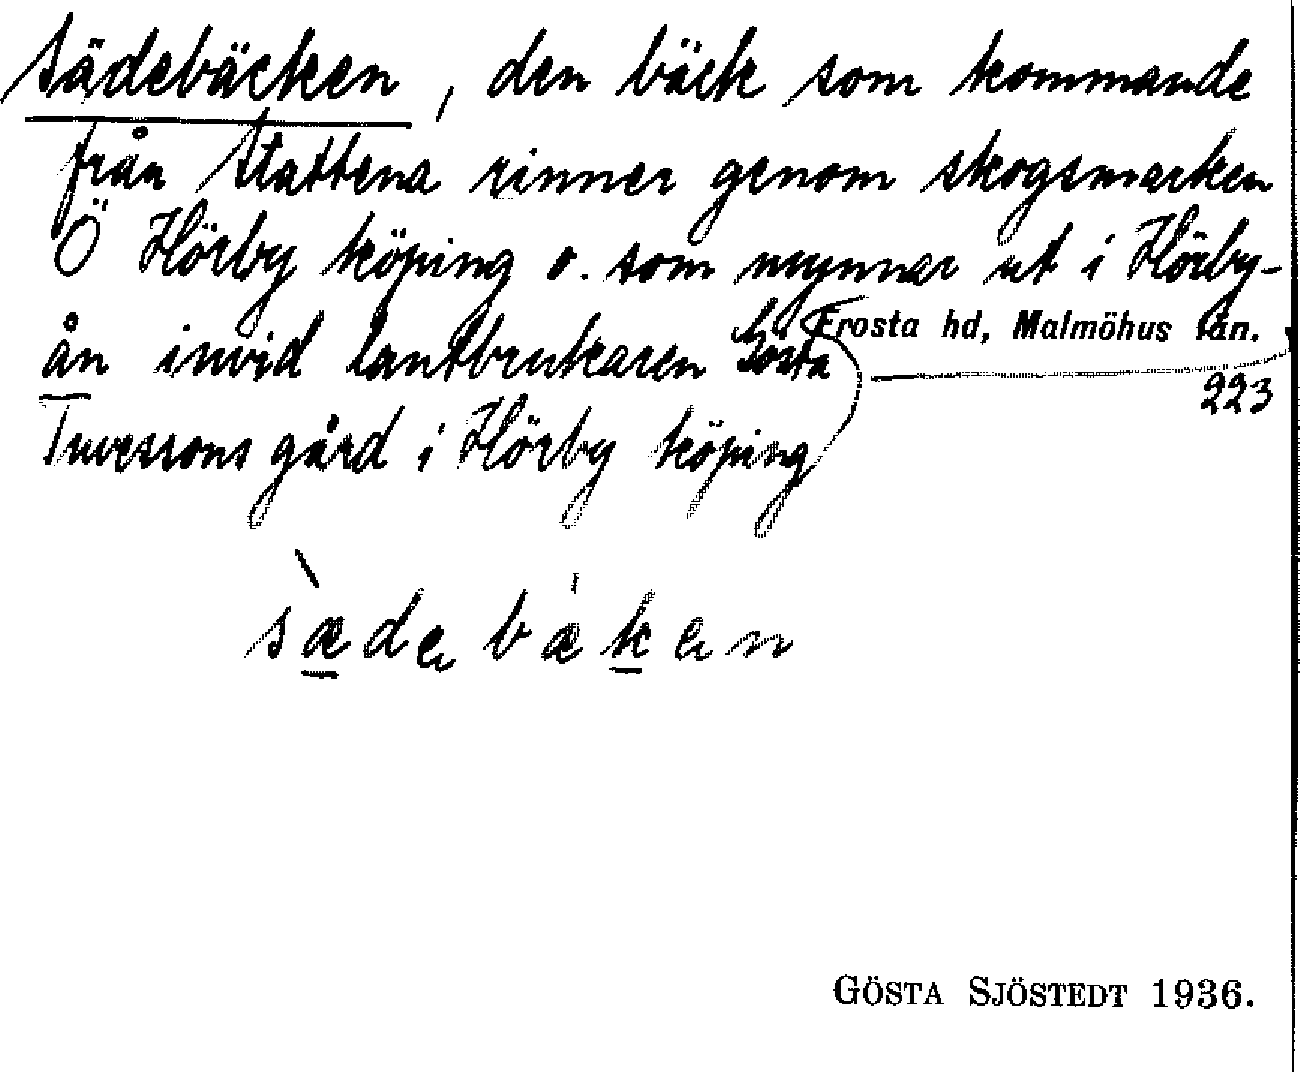 Sädebäcken, den bäck som kommande
från Stattena rinner genom skogsmarken
Ö Hörby köping o. som mynnar ut i Hörby-
ån invid lantbrukaren Gösta
Tuvessons gård i Hörby köping
Frosta hd, Malmöhus län.
223
sædebæken
GÖSTA SJÖSTEDT 1936.